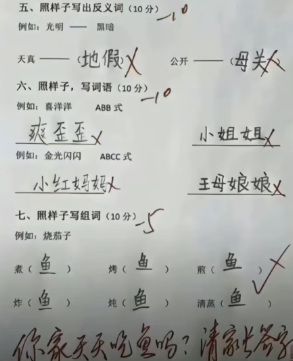 五、照样子写出反义词（10分） -10
例如：光明 —— 黑暗
天真 ——（地假）× 公开 ——（母关）×
六、照样子，写词语（10分） -10
例如：喜洋洋 ABB 式
爽歪歪× 小姐姐×
例如：金光闪闪 ABCC 式
小红妈妈× 王母娘娘×
七、照样子写组词（10分） -5
例如：烧茄子
煮（鱼） 烤（鱼） 煎（鱼）
炸（鱼） 炖（鱼） 清蒸（鱼）
你家天天吃鱼吗？请家长签字